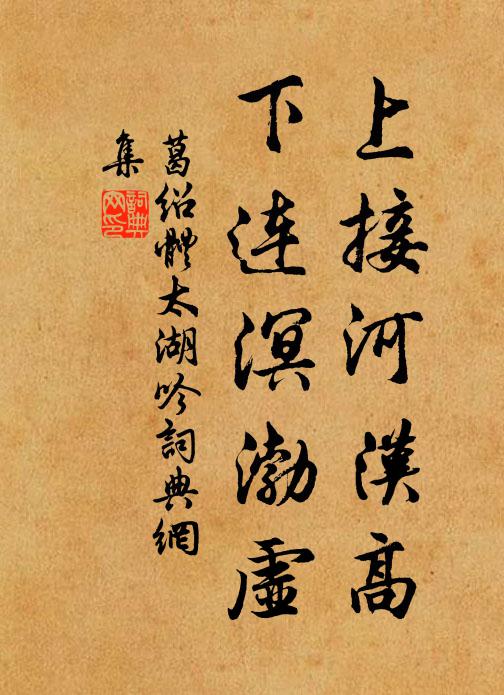 上接河漢高
下連溟渤虛
葛紹體太湖吟詞典網
集
詞典
网印